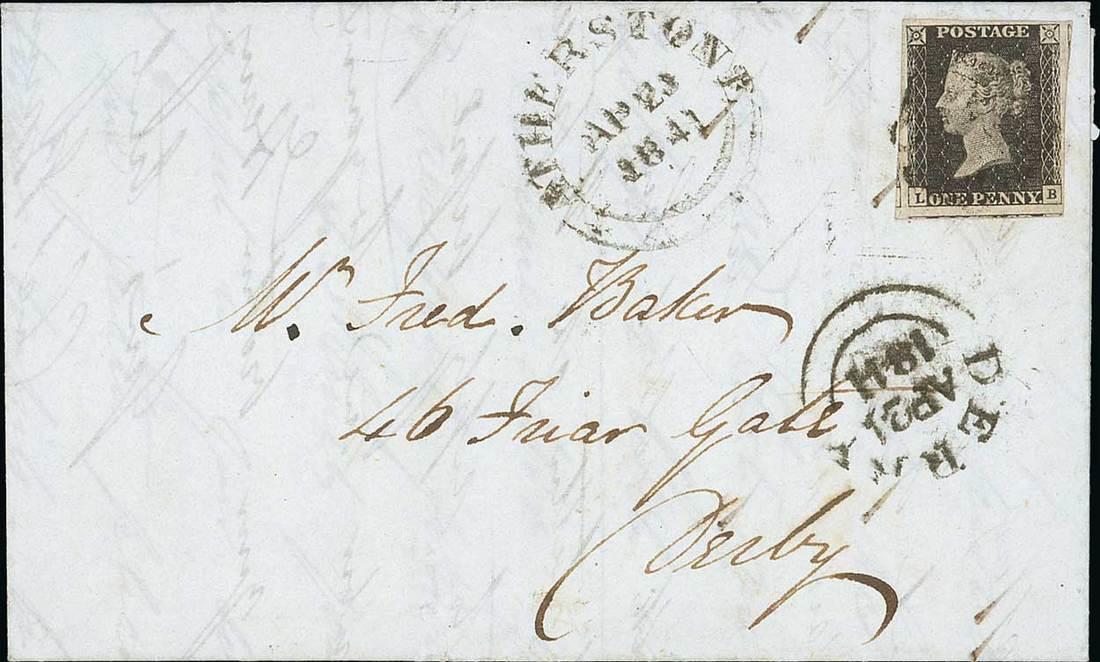 ATHERSTONE
AP 23
1841
POSTAGE
L ONE PENNY B
Mr. Fred. Baker
46 Friar Gate
Derby
DERBY
AP 21
1841